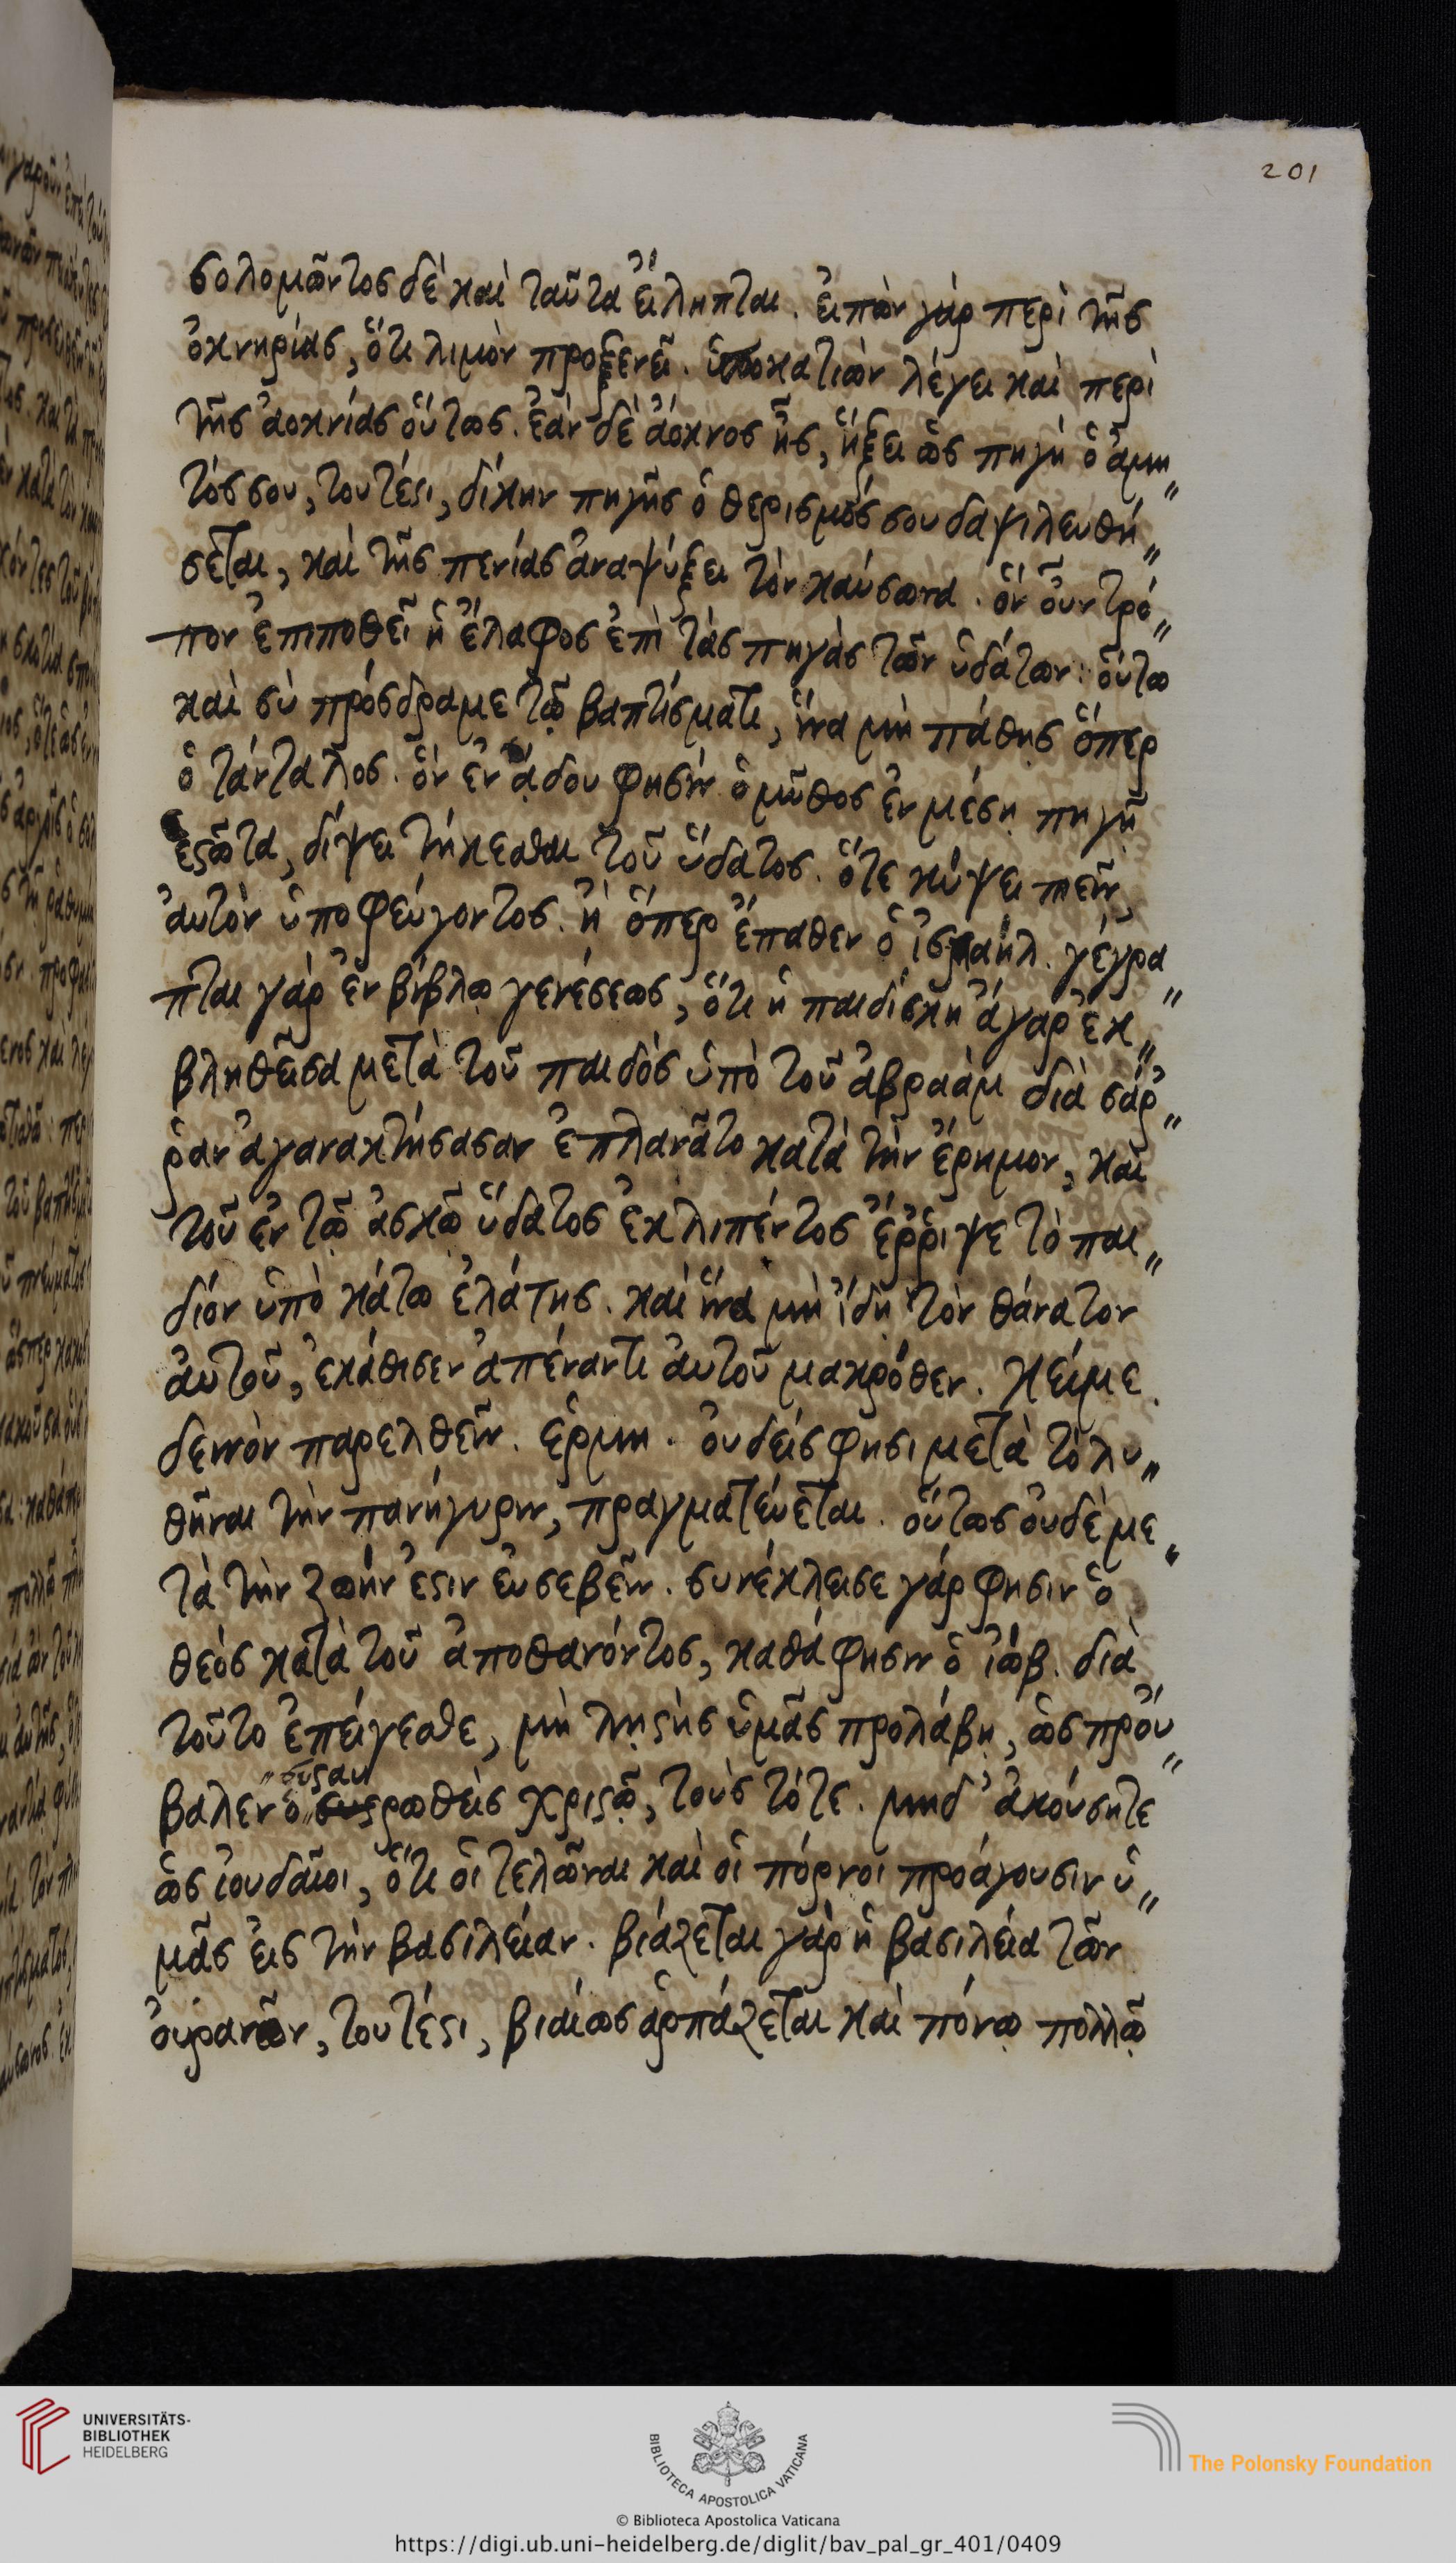 201
σολομῶντος δὲ καὶ ταῦτα εἴληπται. εἰπὼν γάρ περὶ τῆς
ὀκνηρίας, ὅτι λιμὸν προξενεῖ. ὑποκατιὼν λέγει καὶ περὶ
τῆς ἀοκνίας οὕτως. ἐὰν δὲ ἄοκνος ᾖς, ἥξει ὡς πηγὴ ὁ ἀμη„
τός σου, τουτέστι, δίκην πηγῆς ὁ θερισμός σου δαψιλευθή„
σεται, καὶ τῆς πενίας ἀναψύξει τὸν καύσωνα. ὃν οὖν τρό„
πον ἐπιποθεῖ ἡ ἔλαφος ἐπὶ τὰς πηγὰς τῶν ὑδάτων: οὕτω
καὶ σὺ πρόσδραμε τῷ βαπτίσματι, ἵνα μὴ πάθῃς ὅπερ
ὁ τάνταλος. ὃν ἐν ᾅδου φησὶν ὁ μῦθος ἐν μέσῃ πηγῇ
ἑστῶτα, δίψει τήκεσθαι τοῦ ὕδατος. ὅτε κύψει πιεῖν,
αὐτὸν ὑποφεύγοντος. ἢ ὅπερ ἔπαθεν ὁ ἰσμαήλ. γέγρα„
πται γὰρ ἐν βίβλῳ γενέσεως, ὅτι ἡ παιδίσκη ἄγαρ ἐκ„
βληθεῖσα μετὰ τοῦ παιδὸς ὑπὸ τοῦ ἀβραὰμ διὰ σάρ„
ραν ἀγανακτήσασαν ἐπλανᾶτο κατὰ τὴν ἔρημον, καὶ
τοῦ ἐν τῷ ἀσκῷ ὕδατος ἐκλιπόντος ἔρριψε τὸ παι„
δίον ὑπὸ κάτω ἐλάτης. καὶ ἵνα μὴ ἴδῃ τὸν θάνατον
αὐτοῦ, ἐκάθισεν ἀπέναντι αὐτοῦ μακρόθεν.
δεινὸν παρελθεῖν. οὐδείς φησι μετὰ τὸ λυ„
θῆναι τὴν πανήγυριν, πραγματεύεται. οὕτως οὐδὲ με„
τὰ τὴν ζωήν ἐστιν εὐσεβεῖν. συνέκλεισε γάρ φησιν ὁ
θεὸς κατὰ τοῦ ἀποθανόντος, καθά φησιν ὁ ἰώβ. διὰ
τοῦτο ἐπείγεσθε, μὴ λῃστὴς ὑμᾶς προλάβῃ, ὡς προὔ„
βαλεν ὁ συσταυρωθεὶς χριστῷ, τοὺς τότε. μηδ᾽ ἀκούσητε
ὡς ἰουδαῖοι, ὅτι οἱ τελῶναι καὶ οἱ πόρνοι προάγουσιν ὑ„
μᾶς εἰς τὴν βασιλείαν. βιάζεται γὰρ ἡ βασιλεία τῶν
οὐρανῶν, τουτέστι, βιαίως ἁρπάζεται καὶ πόνῳ πολλῷ
UNIVERSITÄTS-
BIBLIOTHEK
HEIDELBERG
BIBLIOTECA APOSTOLICA VATICANA
The Polonsky Foundation
© Biblioteca Apostolica Vaticana
https://digi.ub.uni-heidelberg.de/diglit/bav_pal_gr_401/0409